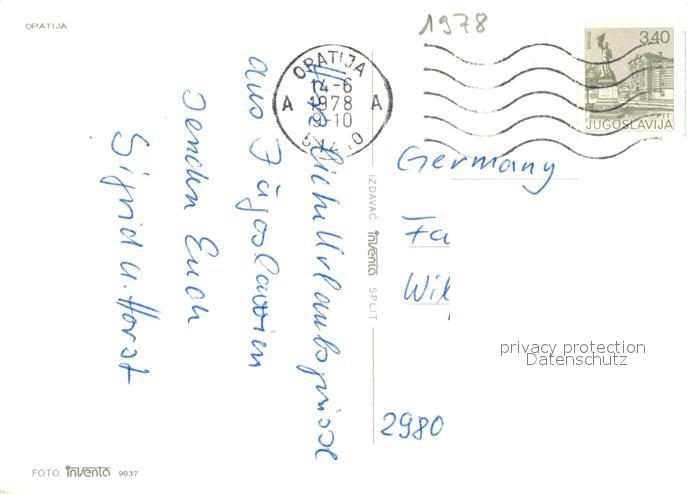 OPATIJA
1978
OPATIJA
14-6
1978
9-10
A A
3,40
JUGOSLAVIJA
Herzliche Urlaubsgrüsse
aus Jugoslawien
senden Euch
Sigrid u. Horst
IZDAVAČ inventa SPLIT
Germany
Fa
Wil
2980
privacy protection
Datenschutz
FOTO inventa 9037